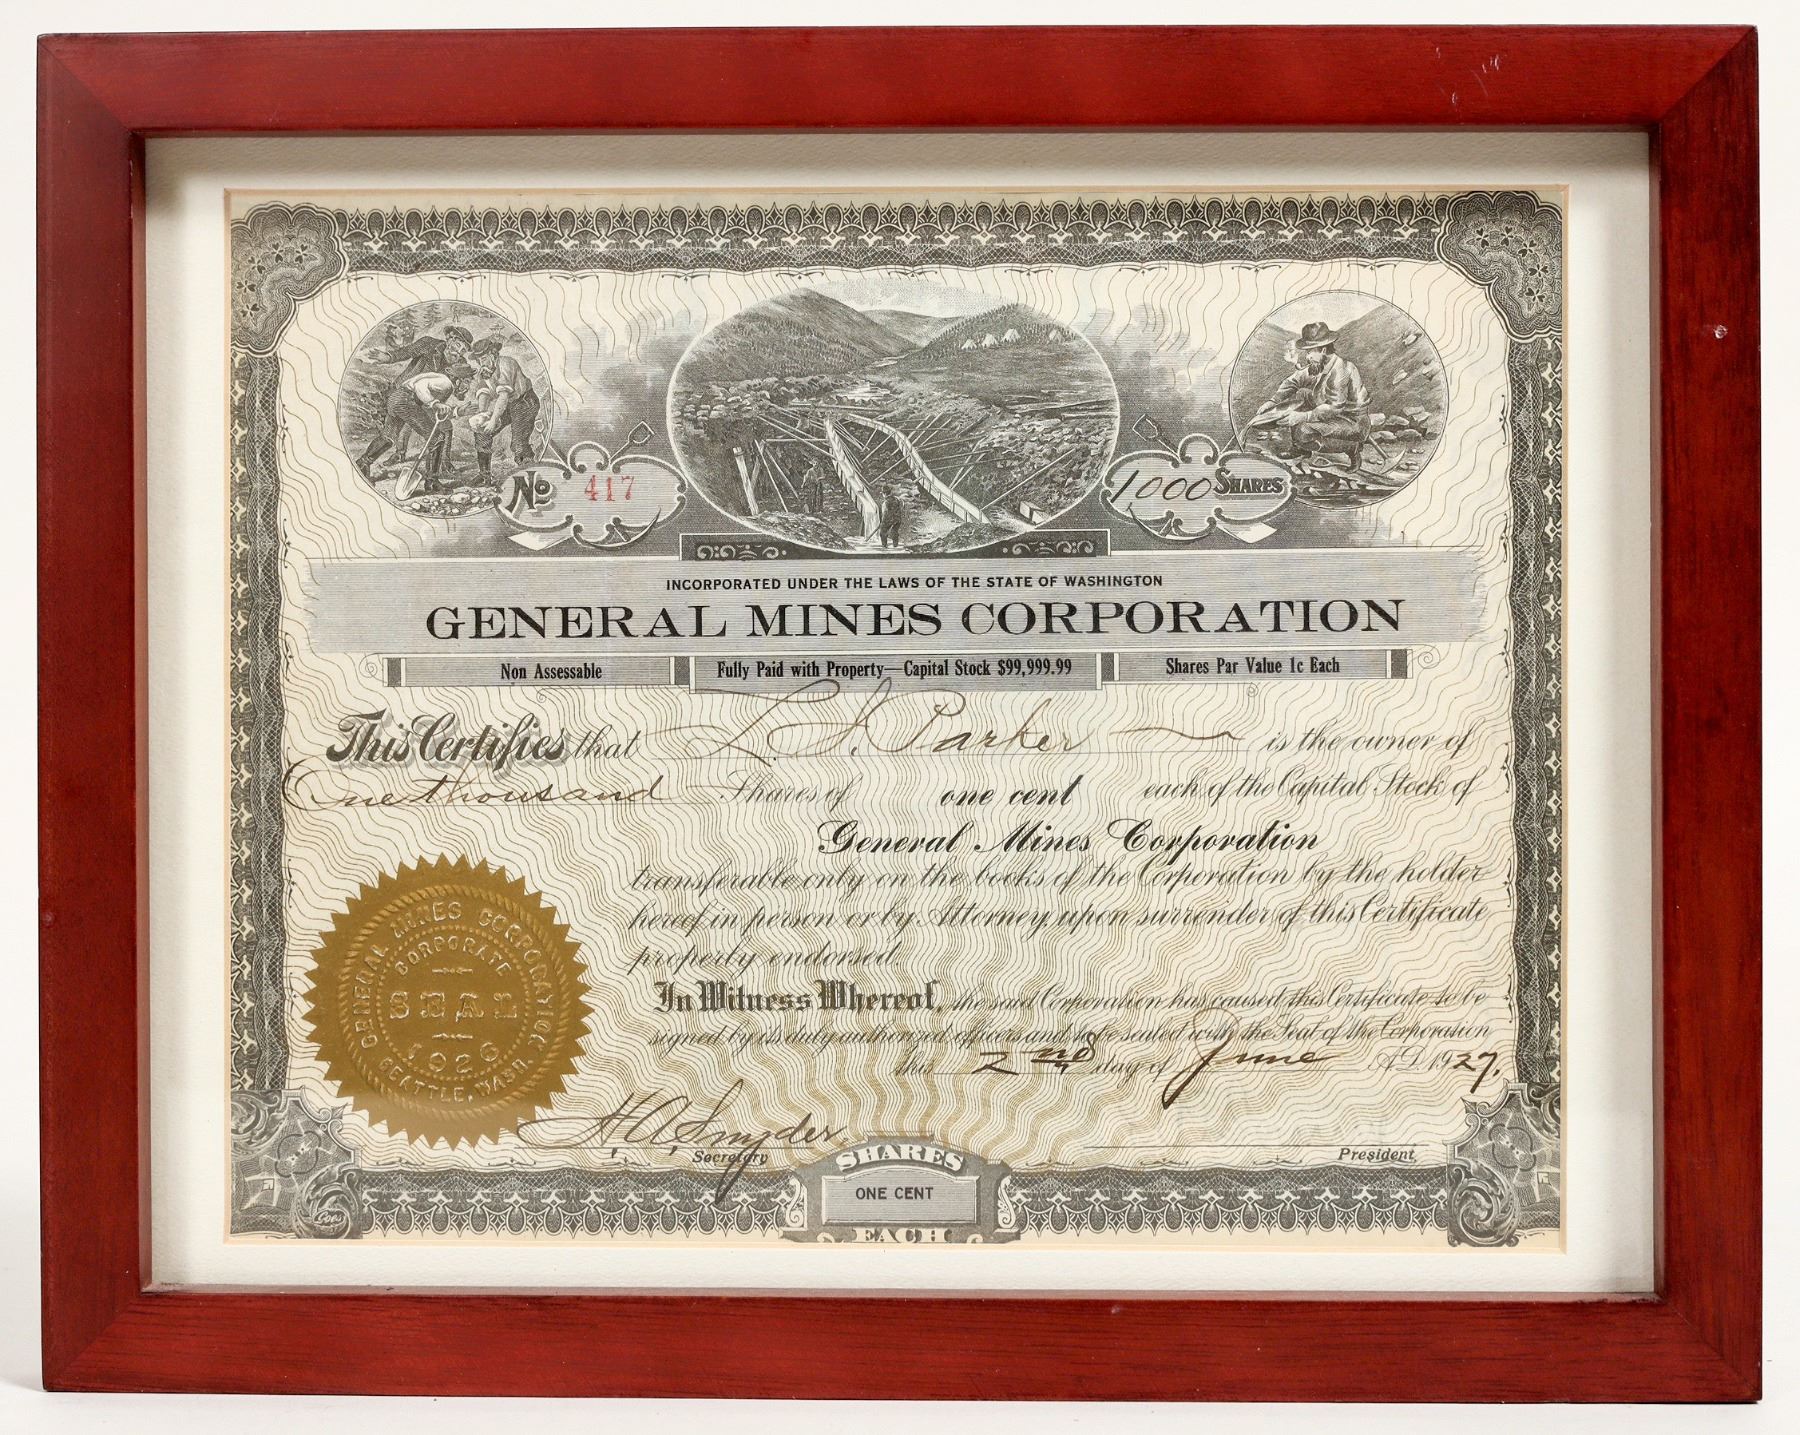 No 417
1000 SHARES
INCORPORATED UNDER THE LAWS OF THE STATE OF WASHINGTON
GENERAL MINES CORPORATION
Non Assessable
Fully Paid with Property—Capital Stock $99,999.99
Shares Par Value 1c Each
This Certifies that L. S. Parker is the owner of
One thousand Shares of one cent each of the Capital Stock of
General Mines Corporation
transferable only on the books of the Corporation by the holder
hereof in person or by Attorney, upon surrender of this Certificate
properly endorsed.
In Witness Whereof, the said Corporation has caused this Certificate to be
signed by its duly authorized officers and to be sealed with the Seal of the Corporation
this 2nd day of June A.D. 1927.
GENERAL MINES CORPORATION
CORPORATE
SEAL
1926
SEATTLE, WASH.
H. A. Snyder,
Secretary
President
SHARES
ONE CENT
EACH
Goes